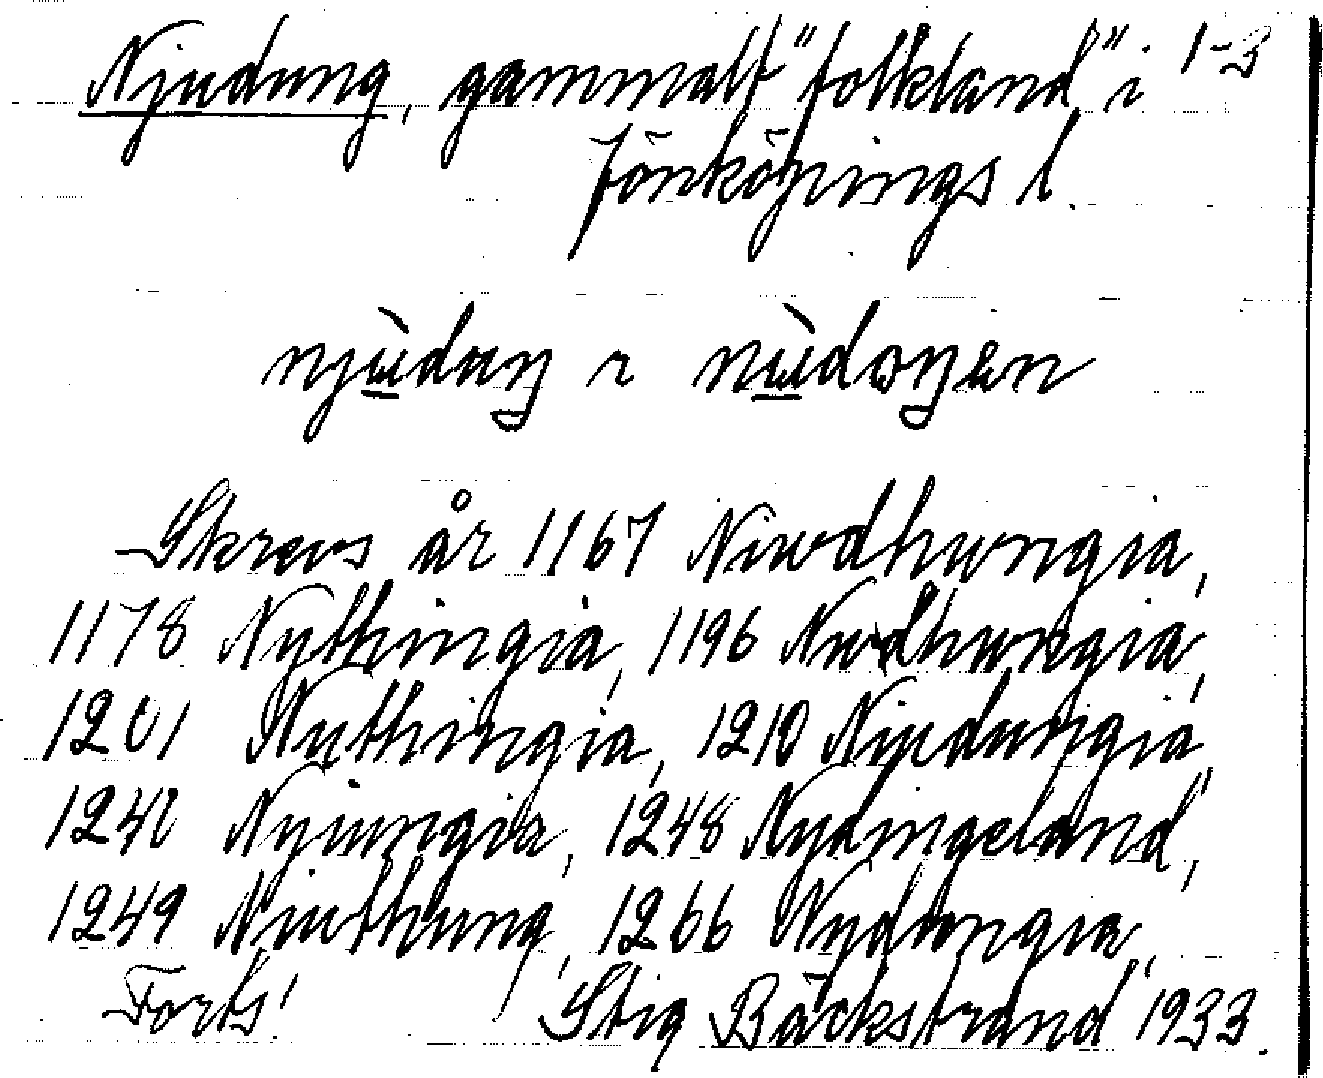 Njudung, gammalt "folkland" i 1-3
Jönköpings l.
njùdaŋ r nùdoŋen
Skrevs år 1167 Niwdhwngia,
1178 Nythingia, 1196 Nwdhwngia,
1201 Nythingia, 1210 Niudungia,
1242 Nyiungia, 1248 Nydingeland,
1249 Niuthung, 1266 Nydungia,
Forts! Stig Bäckstrand 1933.